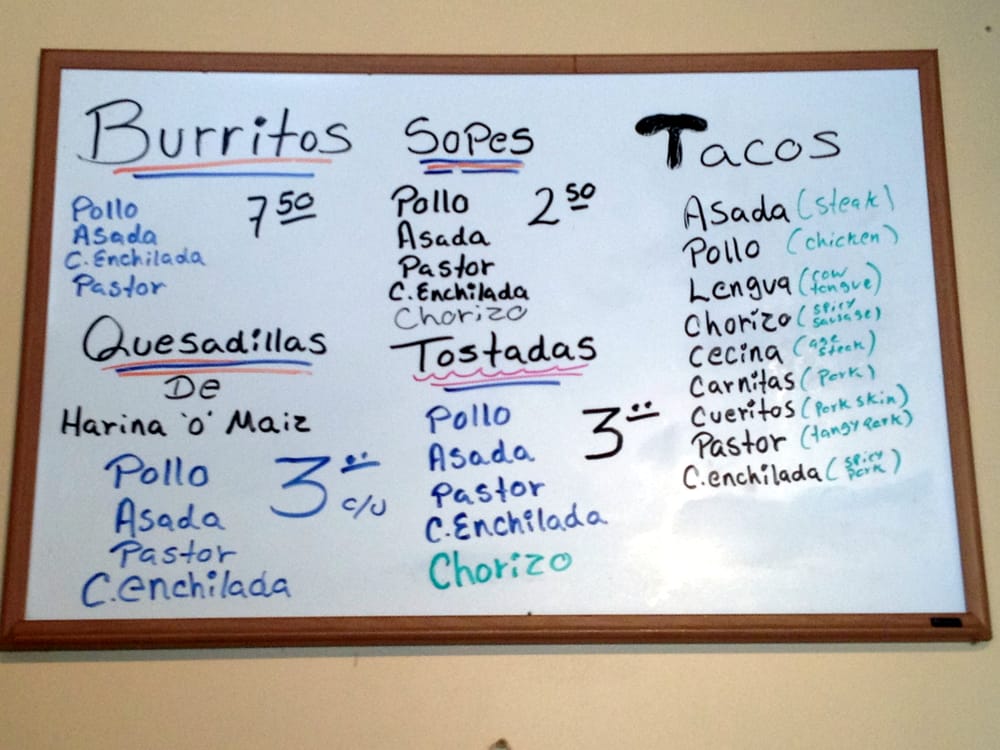 Burritos
7 50
Pollo
Asada
C. Enchilada
Pastor
Quesadillas
De
Harina 'o' Maiz
Pollo
3 c/u
Asada
Pastor
C. enchilada
Sopes
Pollo
2 50
Asada
Pastor
C. Enchilada
Chorizo
Tostadas
Pollo
3
Asada
Pastor
C. Enchilada
Chorizo
Tacos
Asada (steak)
Pollo (chicken)
Lengua (cow tongue)
Chorizo (spicy sausage)
Cecina (age steak)
Carnitas (Pork)
Cueritos (Pork skin)
Pastor (tangy pork)
C. enchilada (spicy pork)